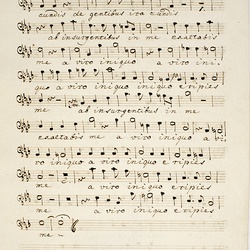 cundis de gentibus ira cundis
ab insurgentibus in me exaltabis
me a viro iniquo a viro ini.
quo a viro iniquo eripies
me ab insurgentibus in me
exaltabis me a viro iniquo a vi.
ro iniquo a viro iniquo eripies
me a viro iniquo eripies
me a viro iniquo eripies
me